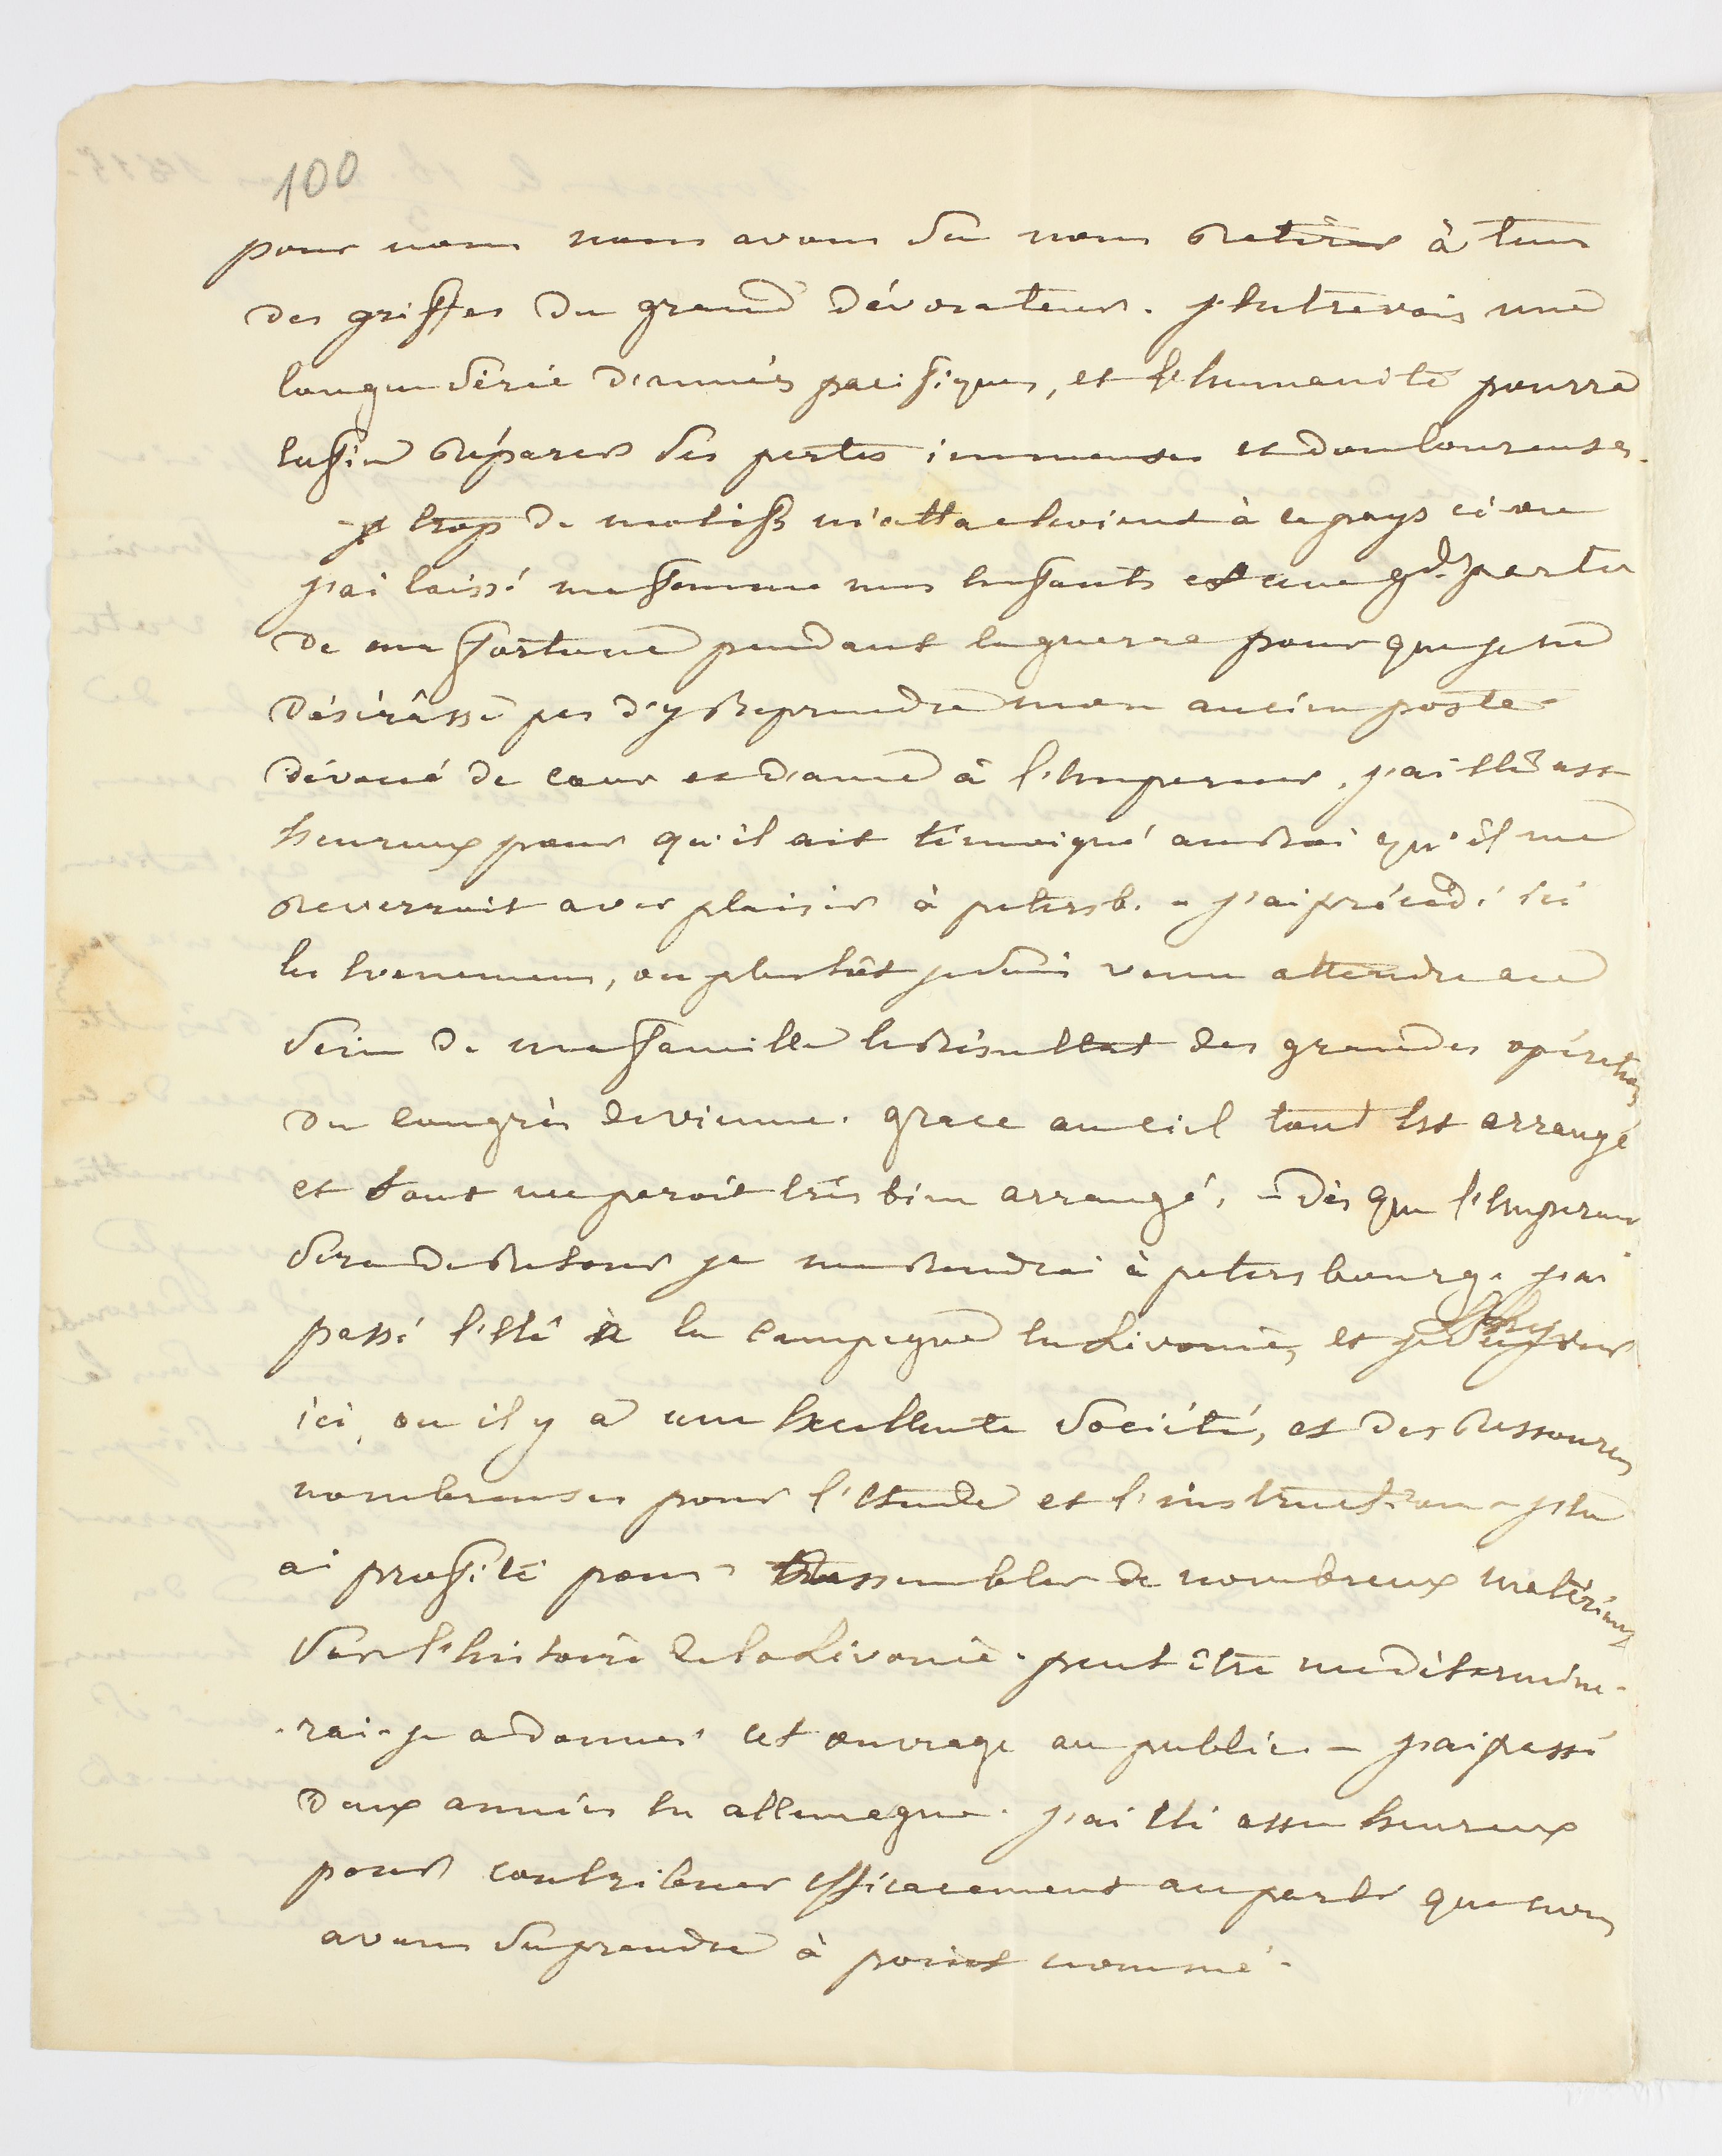 100
pour nous nous avons su nous retirer à tems
des griffes du grand dévorateur. j'entrevois une
longue série d'années pacifiques, et l'humanité pourra
enfin réparer ses pertes immenses et douloureuses.
- trop de motifs m'attachoient à ce pays ci ou
j'ai laissé ma femme mes enfants et une gde. partie
de ma fortune pendant la guerre pour que je ne
désirâsse pas d'y reprendre mon ancien poste
dévoué de cœur et d'ame à l'Empereur. j'ai été assez
heureux pour qu'il ait témoigné au Roi qu'il me
reverroit avec plaisir à petersb. - j'ai précédé ici
les evenemens, ou plustôt je suis venu attendre au
sein de ma famille le résultat des grandes opérations
du congrès de vienne. grace au ciel tout est arrangé
et tout me paroit très bien arrangé. - Dès que l'Empereur
sera de retour je me rendrai à petersbourg. j'ai
passé l'été à la campagne en Livonie, et l'hyver
ici, ou il y a une excellente société, et des ressources
nombreuses pour l'étude et l'instruction - j'en
ai profité pour rassembler de nombreux matériaux
sur l'histoire de la Livonie. peut être me détermine-
-rai-je a donner cet ouvrage au public. - j'ai passé
deux années en allemagne. j'ai été assez heureux
pour contribuer efficacement au parti que nous
avons su prendre à point nommé.